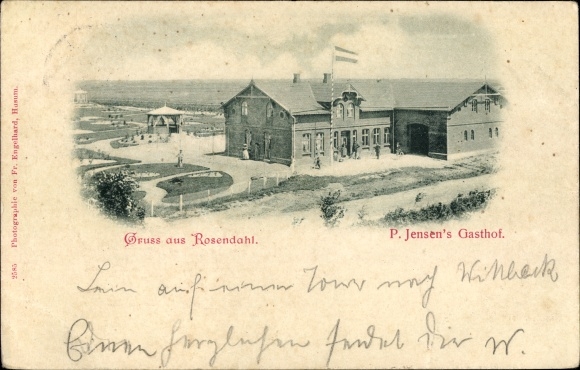 Gruss aus Rosendahl.
P. Jensen's Gasthof.
auf einer Tour nach Wittbeck
Einen herzlichen sendet Dir W.
2585 Photographie von Fr. Engelhard, Husum.